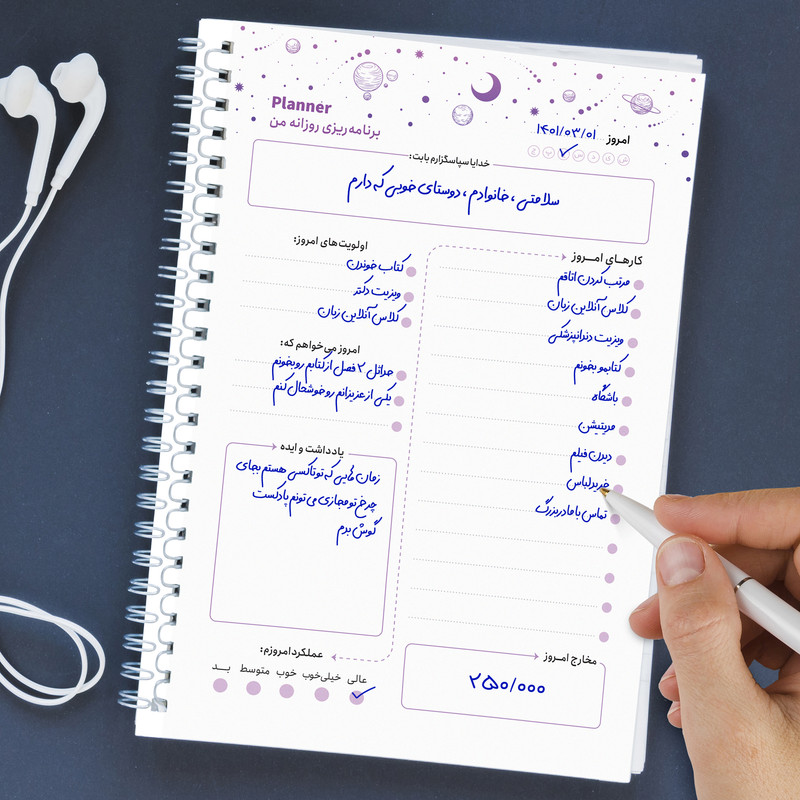 Planner
برنامه‌ریزی روزانه من
امروز ۱۴۰۱/۰۳/۰۱
ش ی د س چ پ ج
خدایا سپاسگزارم بابت:
سلامتی، خانوادم، دوستای خوبی که دارم
کارهای امروز
مرتب کردن اتاقم
کلاس آنلاین زبان
ویزیت دندانپزشکی
کتابمو بخونم
باشگاه
مدیتیشن
دیدن فیلم
خرید لباس
تماس با مادربزرگ
اولویت‌های امروز:
کتاب خوندن
ویزیت دکتر
کلاس آنلاین زبان
امروز می‌خواهم که:
حداقل ۲ فصل از کتابم رو بخونم
یکی از عزیزانم رو خوشحال کنم
یادداشت و ایده
زمان هایی که تو تاکسی هستم بجای
چرخ تو مجازی می تونم پادکست
گوش بدم
عملکرد امروزم:
عالی خیلی‌خوب خوب متوسط بــد
مخارج امروز
۲۵۰/۰۰۰